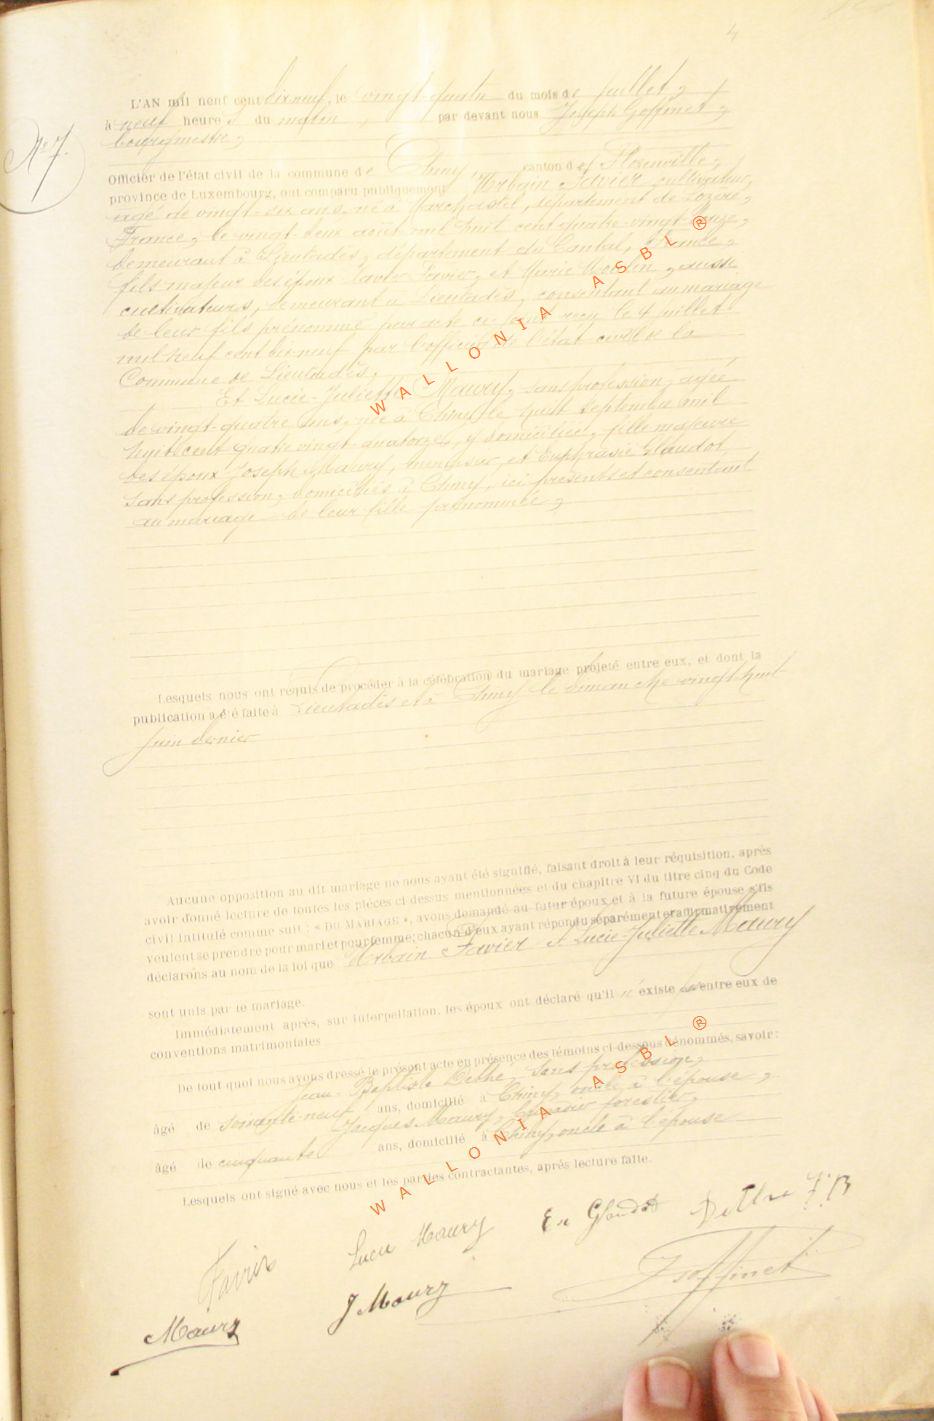 4
L'AN mil neuf cent dix neuf, le vingt-quatre du mois de juillet,
à neuf heures du matin, par devant nous Joseph Goffinet,
bourgmestre,
N° 7.
Officier de l'état civil de la commune de Chiny, canton de Florenville,
province de Luxembourg, ont comparu publiquement Urbain Favier, cultivateur,
âgé de vingt-six ans, né à Marchastel, département de Lozère,
France, le vingt-deux août mil huit cent quatre-vingt-douze,
demeurant à Lieutadès, département du Cantal, France,
fils majeur des époux Favier, et Marie
cultivateurs, demeurant à Lieutadès, consentant au mariage
de leur fils prénommé par acte reçu le 4 juillet
mil neuf cent dix-neuf par l'officier de l'état civil de la
Commune de Lieutadès,
Et Lucie-Juliette Maury, sans profession, âgée
de vingt-quatre ans, née à Chiny le huit septembre mil
huit cent quatre vingt-quatorze, y domiciliée, fille majeure
des époux Joseph Maury, menuisier, et Euphrasie Glaudot,
sans profession, domiciliés à Chiny, ici présents et consentant
au mariage de leur fille prénommée,
Lesquels nous ont requis de procéder à la célébration du mariage projeté entre eux, et dont la
publication a été faite à Lieutadès et à Chiny le dimanche vingt huit
juin dernier
Aucune opposition au dit mariage ne nous ayant été signifié, faisant droit à leur réquisition, après
avoir donné lecture de toutes les pièces ci dessus mentionnées et du chapitre VI du titre cinq du Code
civil intitulé comme suit : « DU MARIAGE », avons demandé au futur époux et à la future épouse s'ils
veulent se prendre pour mari et pour femme; chacun d'eux ayant répondu séparément et affirmativement
déclarons au nom de la loi que Urbain Favier et Lucie-Juliette Maury
sont unis par le mariage.
Immédiatement après, sur interpellation, les époux ont déclaré qu'il n'existe pas entre eux de
conventions matrimoniales
De tout quoi nous avons dressé le présent acte en présence des témoins ci-dessous dénommés, savoir:
Jean-Baptiste Dethe, sans profession,
âgé de soixante-neuf ans, domicilié à Chiny, oncle à l'épouse,
Jacques Maury, forestier,
âgé de cinquante ans, domicilié à Chiny, oncle à l'épouse
Lesquels ont signé avec nous et les parties contractantes, après lecture faite.
Favier Lucie Maury Glaudot J.B
Maury J Maury J Goffinet
WALLONIA ASBL ®
WALLONIA ASBL ®